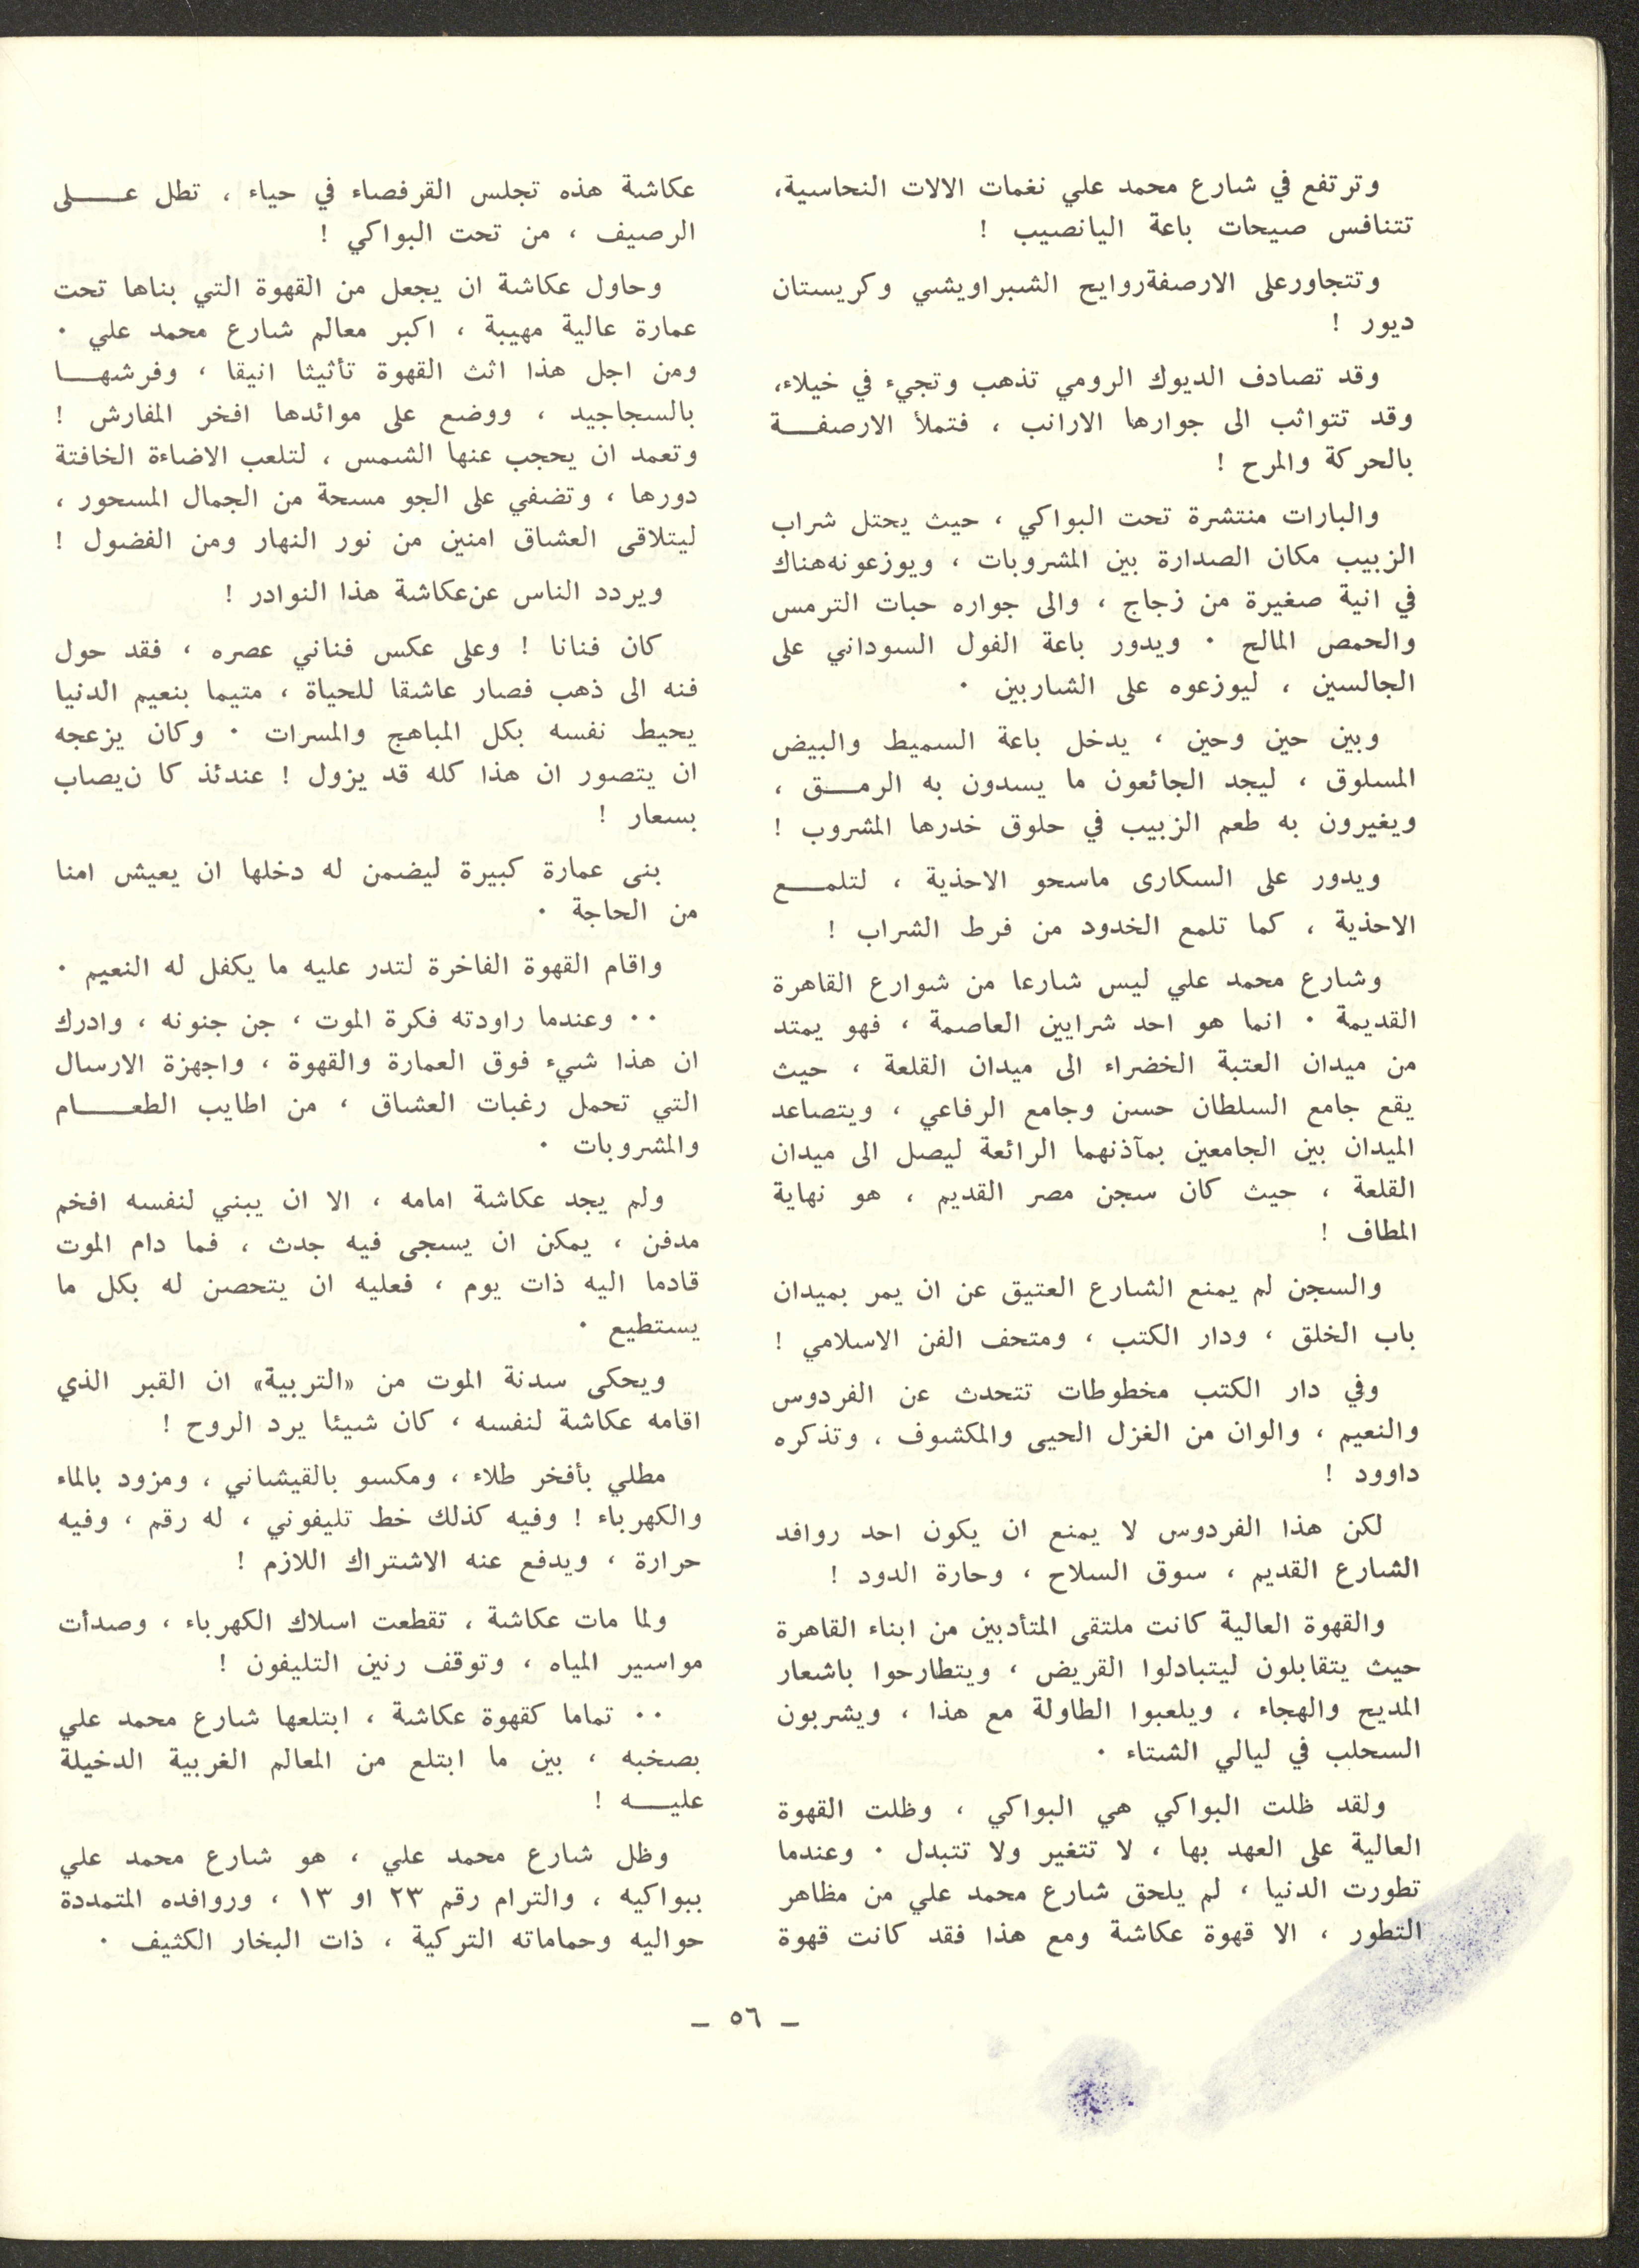 وترتفع في شارع محمد علي نغمات الالات النحاسية،
تتنافس صيحات باعة اليانصيب !
وتتجاورعلى الارصفةروايح الشبراويشي وكريستان
ديور !
وقد تصادف الديوك الرومي تذهب وتجيء في خيلاء،
وقد تتواثب الى جوارها الارانب ، فتملأ الارصفـــة
بالحركة والمرح !
والبارات منتشرة تحت البواكي ، حيث يحتل شراب
الزبيب مكان الصدارة بين المشروبات ، ويوزعونههناك
في انية صغيرة من زجاج ، والى جواره حبات الترمس
والحمص المالح ٠ ويدور باعة الفول السوداني على
الجالسين ، ليوزعوه على الشاربين ٠
وبين حين وحين ، يدخل باعة السميط والبيض
المسلوق ، ليجد الجائعون ما يسدون به الرمـــق ،
ويغيرون به طعم الزبيب في حلوق خدرها المشروب !
ويدور على السكارى ماسحو الاحذية ، لتلمـــع
الاحذية ، كما تلمع الخدود من فرط الشراب !
وشارع محمد علي ليس شارعا من شوارع القاهرة
القديمة ٠ انما هو احد شرايين العاصمة ، فهو يمتد
من ميدان العتبة الخضراء الى ميدان القلعة ، حيث
يقع جامع السلطان حسن وجامع الرفاعي ، ويتصاعد
الميدان بين الجامعين بمآذنهما الرائعة ليصل الى ميدان
القلعة ، حيث كان سجن مصر القديم ، هو نهاية
المطاف !
والسجن لم يمنع الشارع العتيق عن ان يمر بميدان
باب الخلق ، ودار الكتب ، ومتحف الفن الاسلامي !
وفي دار الكتب مخطوطات تتحدث عن الفردوس
والنعيم ، والوان من الغزل الحيى والمكشوف ، وتذكره
داوود !
لكن هذا الفردوس لا يمنع ان يكون احد روافد
الشارع القديم ، سوق السلاح ، وحارة الدود !
والقهوة العالية كانت ملتقى المتأدبين من ابناء القاهرة
حيث يتقابلون ليتبادلوا القريض ، ويتطارحوا باشعار
المديح والهجاء ، ويلعبوا الطاولة مع هذا ، ويشربون
السحلب في ليالي الشتاء ٠
ولقد ظلت البواكي هي البواكي ، وظلت القهوة
العالية على العهد بها ، لا تتغير ولا تتبدل ٠ وعندما
تطورت الدنيا ، لم يلحق شارع محمد علي من مظاهر
التطور ، الا قهوة عكاشة ومع هذا فقد كانت قهوة
عكاشة هذه تجلس القرفصاء في حياء ، تطل عـــلى
الرصيف ، من تحت البواكي !
وحاول عكاشة ان يجعل من القهوة التي بناها تحت
عمارة عالية مهيبة ، اكبر معالم شارع محمد علي ٠
ومن اجل هذا اثث القهوة تأثيثا انيقا ، وفرشهـــا
بالسجاجيد ، ووضع على موائدها افخر المفارش !
وتعمد ان يحجب عنها الشمس ، لتلعب الاضاءة الخافتة
دورها ، وتضفي على الجو مسحة من الجمال المسحور ،
ليتلاقى العشاق امنين من نور النهار ومن الفضول !
ويردد الناس عن‌عكاشة هذا النوادر !
كان فنانا ! وعلى عكس فناني عصره ، فقد حول
فنه الى ذهب فصار عاشقا للحياة ، متيما بنعيم الدنيا
يحيط نفسه بكل المباهج والمسرات ٠ وكان يزعجه
ان يتصور ان هذا كله قد يزول ! عندئذ كا ن‌يصاب
بسعار !
بنى عمارة كبيرة ليضمن له دخلها ان يعيش امنا
من الحاجة ٠
واقام القهوة الفاخرة لتدر عليه ما يكفل له النعيم ٠
٠٠ وعندما راودته فكرة الموت ، جن جنونه ، وادرك
ان هذا شيء فوق العمارة والقهوة ، واجهزة الارسال
التي تحمل رغبات العشاق ، من اطايب الطعـــام
والمشروبات ٠
ولم يجد عكاشة امامه ، الا ان يبني لنفسه افخم
مدفن ، يمكن ان يسجى فيه جدث ، فما دام الموت
قادما اليه ذات يوم ، فعليه ان يتحصن له بكل ما
يستطيع ٠
ويحكى سدنة الموت من «التربية» ان القبر الذي
اقامه عكاشة لنفسه ، كان شيئا يرد الروح !
مطلي بأفخر طلاء ، ومكسو بالقيشاني ، ومزود بالماء
والكهرباء ! وفيه كذلك خط تليفوني ، له رقم ، وفيه
حرارة ، ويدفع عنه الاشتراك اللازم !
ولما مات عكاشة ، تقطعت اسلاك الكهرباء ، وصدأت
مواسير المياه ، وتوقف رنين التليفون !
٠٠ تماما كقهوة عكاشة ، ابتلعها شارع محمد علي
بصخبه ، بين ما ابتلع من المعالم الغربية الدخيلة
عليـــه !
وظل شارع محمد علي ، هو شارع محمد علي
ببواكيه ، والترام رقم ٢٣ او ١٣ ، وروافده المتمددة
حواليه وحماماته التركية ، ذات البخار الكثيف ٠
— ٥٦ —